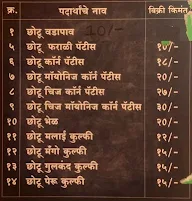 क्र. पदार्थाचे नाव विक्री किंमत
१ छोटू वडापाव १०/-
५ छोटू फराळी पॅटीस १०/-
६ छोटू कॉर्न पॅटीस १८/-
७ छोटू मॉयोनिज कॉर्न पॅटीस २०/-
८ छोटू चिज कॉर्न पॅटीस २५/-
९ छोटू चिज मॉयोनिज कॉर्न पॅटीस ३०/-
१० छोटू भेळ २०/-
११ छोटू मलाई कुल्फी १५/-
१२ छोटू मँगो कुल्फी १५/-
१३ छोटू गुलकंद कुल्फी १५/-
१४ छोटू पेरू कुल्फी १५/-